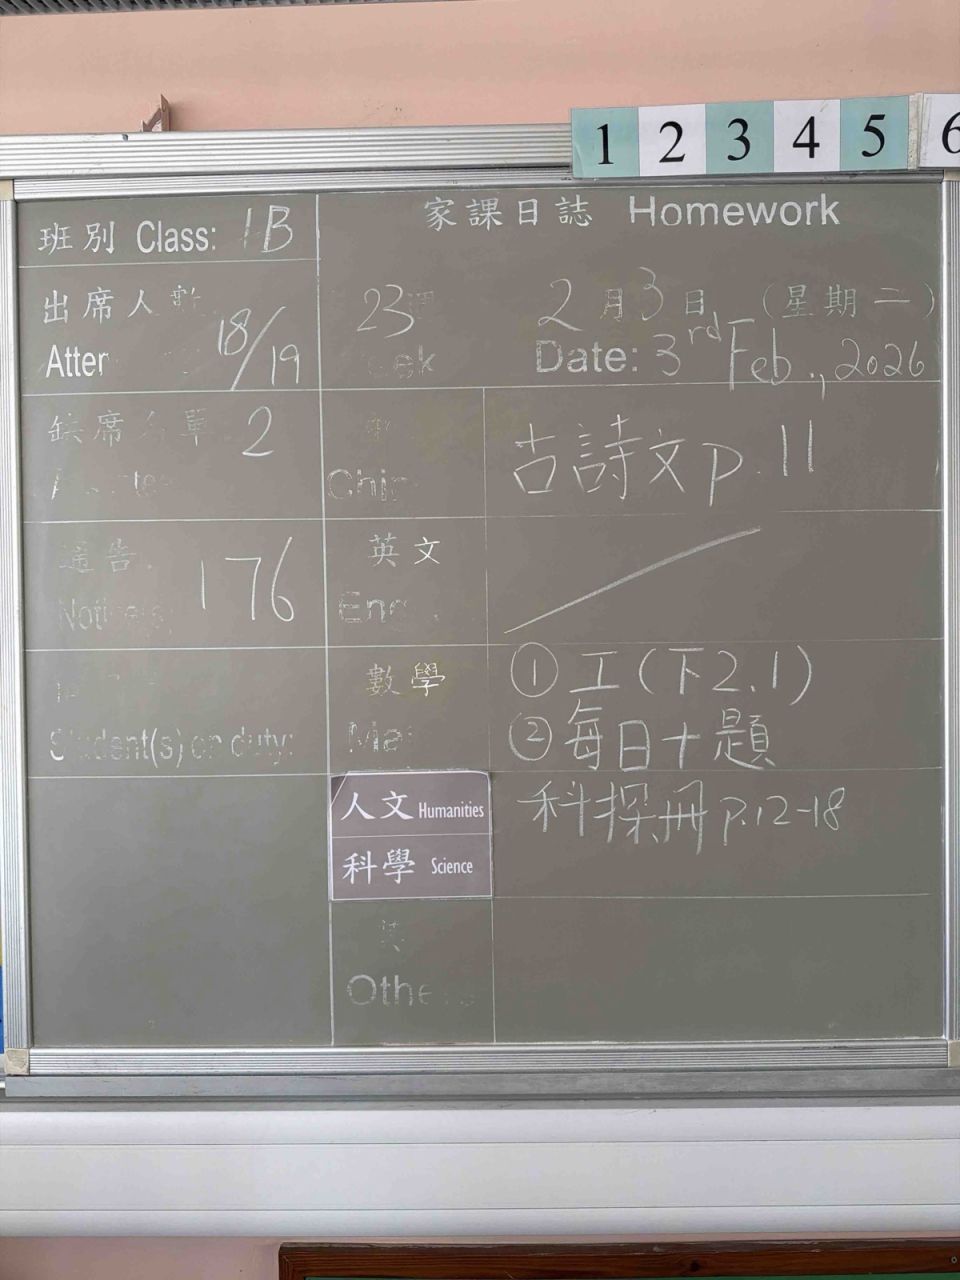 1 2 3 4 5 6
班別 Class: 1B
家課日誌 Homework
出席人數
Atter
18/19
23週
eek
2月3日 (星期二)
Date: 3rd Feb., 2026
缺席名單 2
中
Chin
古詩文 p.11
通告 176
Notice(s)
英文
Eng
數學
Ma
① 工(下2.1)
② 每日十題
Student(s) on duty:
人文 Humanities
科學 Science
科探冊 p.12-18
其
Othe